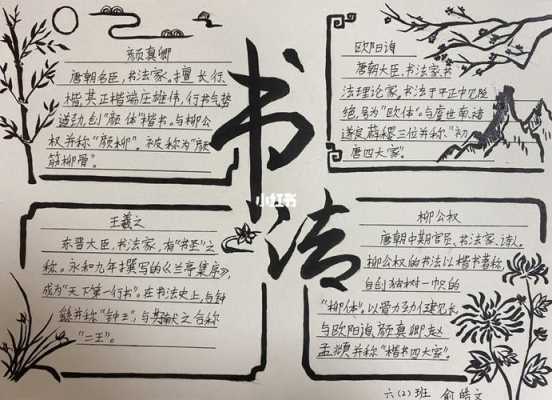 颜真卿
唐朝名臣,书法家,擅长行、
楷,其正楷端庄雄伟,行书气势
遒劲,创"颜体"楷书。与柳公
权并称"颜柳",被称为"颜
筋柳骨"。
欧阳询
唐朝大臣,书法家,书
法理论家,书法于平正中见险
绝,号为"欧体"。与虞世南,褚
遂良,薛稷三位并称"初
唐四大家"。
书法
小红书
王羲之
东晋大臣,书法家,有"书圣"之
称。永和九年撰写的《兰亭集序》,
成为"天下第一行书"。在书法史上,与钟
繇并称"钟王",与其献之合称
"二王"。
柳公权
唐朝中期官员、书法家、诗人。
柳公权的书法以楷书著称,
自创独树一帜的
"柳体",以骨力劲健见长,
与欧阳询,颜真卿,赵
孟頫并称"楷书四大家"。
六(2)班 俞皓文